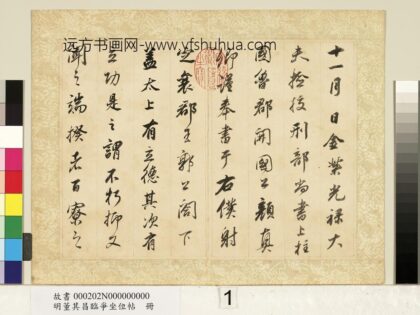 远方书画网--www.yfshuhua.com
十一月 日金紫光祿大
夫檢校刑部尚書上柱
國魯郡開國公顏真
卿謹奉書于右僕射
定襄郡王郭公閣下
蓋太上有立德其次有
立功是之謂不朽抑又
聞之端揆者百寮之
故書 000202N000000000
明董其昌臨爭坐位帖 冊
1